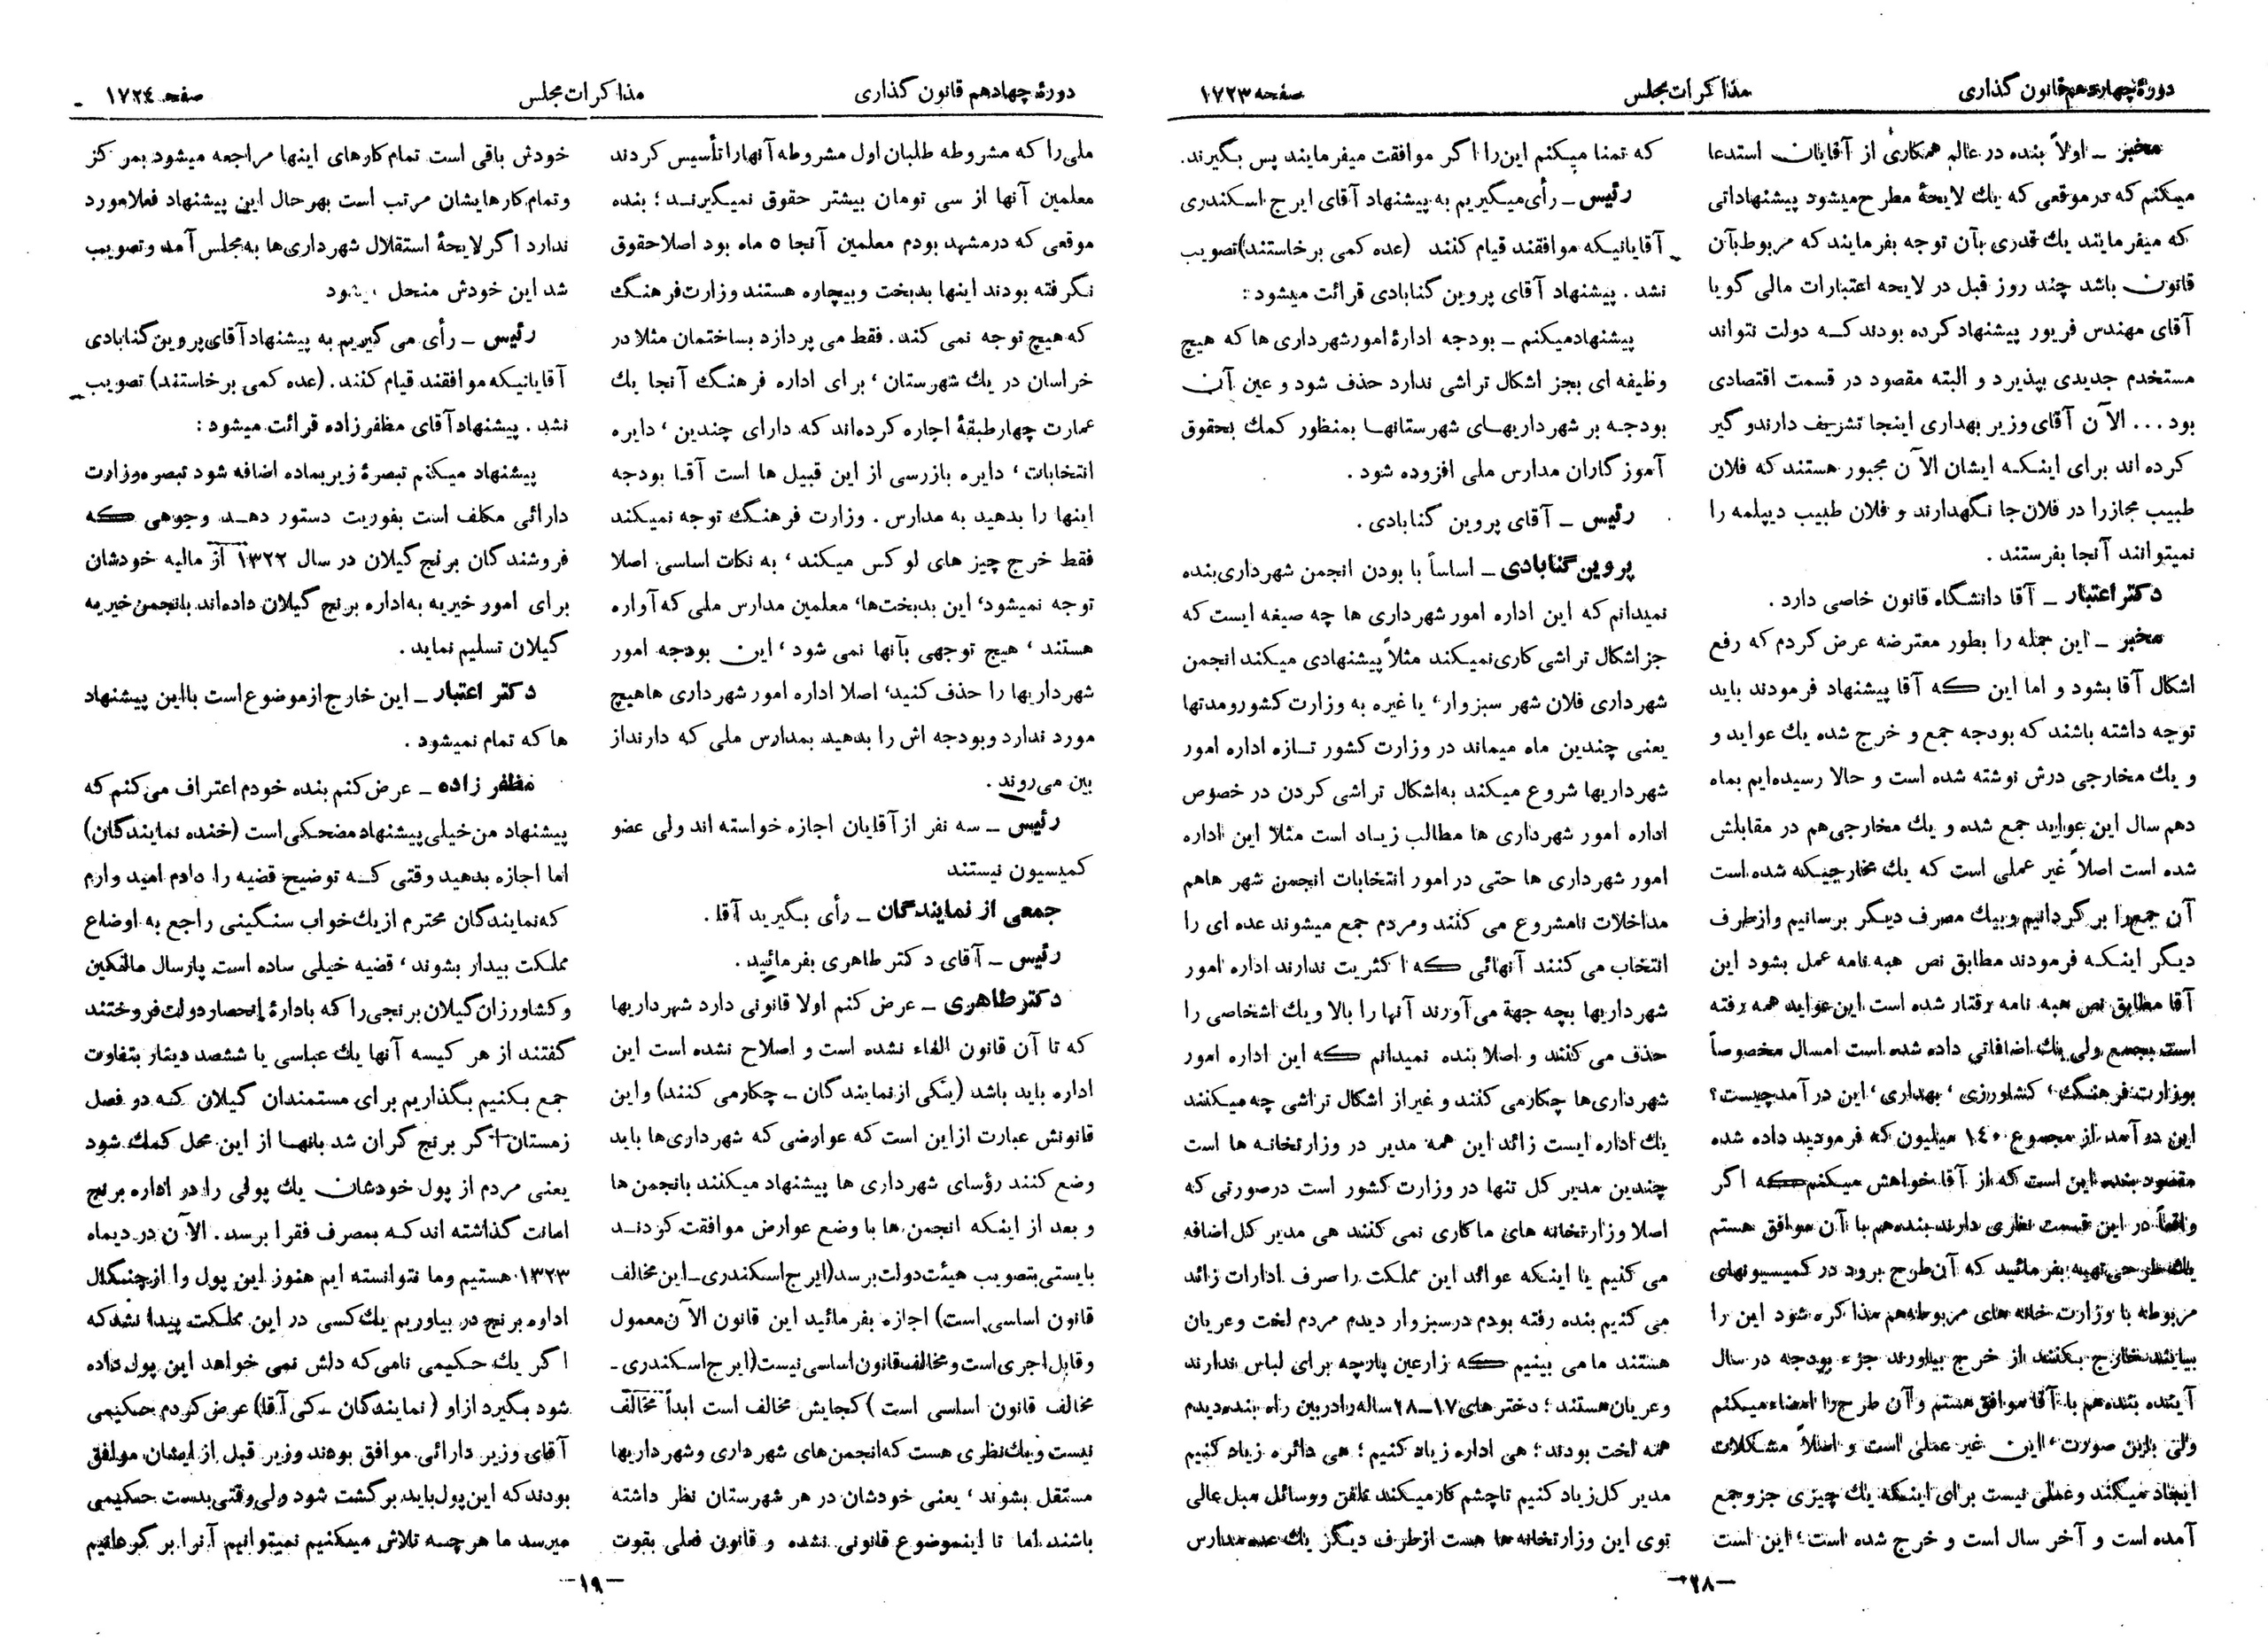 دورهٔ چهاردهم قانون گذاری
مذاکرات مجلس
صفحه ۱۷۲۳
مخبر ــ اولاً بنده در عالم همکاری از آقایان استدعا
میکنم که در موقعی که یك لایحهٔ مطرح میشود پیشنهاداتی
که میفرمایند یك قدری بآن توجه بفرمایند که مربوط بآن
قانون باشد چند روز قبل در لایحه اعتبارات مالی گویا
آقای مهندس فریور پیشنهاد کرده بودند کـه دولت نتواند
مستخدم جدیدی بپذیرد و البته مقصود در قسمت اقتصادی
بود ... الآن آقای وزیر بهداری اینجا تشریف دارند و گیر
کرده اند برای اینکـه ایشان الآن مجبور هستند که فلان
طبیب مجاز را در فلان جا نگهدارند و فلان طبیب دیپلمه را
نمیتوانند آنجا بفرستند .
دکتر اعتبار ــ آقا دانشگاه قانون خاصی دارد .
مخبر ــ این جمله را بطور معترضه عرض کردم که رفع
اشکال آقا بشود و اما این که آقا پیشنهاد فرمودند باید
توجه داشته باشند که بودجه جمع و خرج شده یك عواید و
و یك مخارجی درش نوشته شده است و حالا رسیده‌ایم بماه
دهم سال این عواید جمع شده و یك مخارجی هم در مقابلش
شده است اصلاً غیر عملی است که یك مخارجیکه شده است
آن جمع را بر گردانیم و بیك مصرف دیگر برسانیم و از طرف
دیگر اینکـه فرمودند مطابق نص هبه نامه عمل بشود این
آقا مطابق نص هبه نامه رفتار شده است این عواید همه رفته
است بجمع ولی یك اضافاتی داده شده است امسال مخصوصاً
بوزارت فرهنگ ، کشاورزی ، بهداری ، این در آمد چیست؟
این در آمد از مجموع ۱٤۰ میلیون که فرمودید داده شده
مقصود بنده این است که از آقا خواهش میکنم که اگر
واقعاً در این قسمت نظری دارند بنده هم با آن موافق هستم
یك طرحی تهیه بفرمائید که آن طرح برود در کمیسیونهای
مربوطه با وزارت خانه های مربوطه هم مذاکره شود این را
بیایند خارج بکنند از خرج بیاورند جزء بودجه در سال
آینده بنده هم با آقا موافق هستم و آن طرح را امضاء میکنم
ولی باین صورت ، این غیر عملی است و اصلاً مشکلات
ایجاد میکند و عملی نیست برای اینکه یك چیزی جزو جمع
آمده است و آخر سال است و خرج شده است ؛ این است
که تمنا میکنم این را اگر موافقت میفرمایند پس بگیرند.
رئیس ــ رأی میگیریم به پیشنهاد آقای ایرج اسکندری
آقایانیکه موافقند قیام کنند (عده کمی برخاستند) تصویب
نشد . پیشنهاد آقای پروین گنابادی قرائت میشود :
پیشنهاد میکنم ــ بودجه ادارهٔ امور شهرداری ها که هیچ
وظیفه ای بجز اشکال تراشی ندارد حذف شود و عین آن
بودجـه بر شهرداریهـای شهرستانهـا بمنظور کمك بحقوق
آموزگاران مدارس ملی افزوده شود .
رئیس ــ آقای پروین گنابادی .
پروین گنابادی ــ اساساً با بودن انجمن شهرداری بنده
نمیدانم که این اداره امور شهرداری ها چه صیغه ایست که
جز اشکال تراشی کاری نمیکند مثلاً پیشنهادی میکند انجمن
شهرداری فلان شهر سبزوار ، یا غیره به وزارت کشور و مدتها
یعنی چندین ماه میماند در وزارت کشور تـازه اداره امور
شهرداریها شروع میکند به اشکال تراشی کردن در خصوص
اداره امور شهرداری ها مطالب زیـاد است مثلا این اداره
امور شهرداری ها حتی در امور انتخابات انجمن شهر هاهم
مداخلات نامشروع می کنند و مردم جمع میشوند عده ای را
انتخاب می کنند آنهائی که اکثریت ندارند اداره امور
شهرداریها بچه جهة می آورند آنها را بالا و یك اشخاصی را
حذف می کنند و اصلا بنده نمیدانم که این اداره امور
شهرداری‌ها چکار می کنند و غیر از اشکال تراشی چه میکنند
یك اداره ایست زائد این همه مدیر در وزارتخانه ها است
چندین مدیر کل تنها در وزارت کشور است در صورتی که
اصلا وزارتخانه های ما کاری نمی کنند هی مدیر کل اضافه
می کنیم یا اینکه عوائد این مملکت را صرف ادارات زائد
می کنیم بنده رفته بودم در سبزوار دیدم مردم لخت و عریان
هستند ما می بینیم که زارعین پارچه برای لباس ندارند
و عریان هستند ؛ دخترهای ۱۷ــ۲۸ ساله را در بین راه بنده دیدم
همه لخت بودند ؛ هی اداره زیاد کنیم ؛ هی دائره زیاد کنیم
مدیر کل زیاد کنیم تا چشم کار میکند تلفن و وسائل مبل عالی
توی این وزارتخانه ها هست از طرف دیگر یك عده مدارس
ــ۲۸ــ
دورهٔ چهادهم قانون گذاری
مذاکرات مجلس
صفحه ۱۷۲٤
ملی را که مشروطه طلبان اول مشروطه آنها را تأسیس کردند
معلمین آنها از سی تومان بیشتر حقوق نمیگیرنـد ؛ بنده
موقعی که در مشهد بودم معلمین آنجا ٥ ماه بود اصلا حقوق
نگرفته بودند اینها بدبخت و بیچاره هستند وزارت فرهنگ
که هیچ توجه نمی کند . فقط می پردازد بساختمان مثلا در
خراسان در یك شهرستان ، برای اداره فرهنگ آنجا یك
عمارت چهار طبقهٔ اجاره کرده‌اند که دارای چندین ، دایره
انتخابات ، دایره بازرسی از این قبیل ها است آقـا بودجه
اینها را بدهید به مدارس . وزارت فرهنگ توجه نمیکند
فقط خرج چیز های لوکس میکند ، به نکات اساسی اصلا
توجه نمیشود ، این بدبخت‌ها ، معلمین مدارس ملی که آواره
هستند ، هیچ توجهی بآنها نمی شود ، این بودجه امور
شهرداریها را حذف کنید ، اصلا اداره امور شهرداری هاهیچ
مورد ندارد و بودجه اش را بدهید بمدارس ملی که دارند از
بین می‌روند .
رئیس ــ سه نفر از آقایان اجازه خواسته اند ولی عضو
کمیسیون نیستند
جمعی از نمایندگان ــ رأی بگیرید آقا .
رئیس ــ آقای دکتر طاهری بفرمائید .
دکتر طاهری ــ عرض کنم اولا قانونی دارد شهرداریها
که تا آن قانون الغاء نشده است و اصلاح نشده است این
اداره باید باشد (یکی از نمایندگان ــ چکار می کنند) و این
قانونش عبارت از این است که عوارضی که شهرداری‌ها باید
وضع کنند رؤسای شهرداری ها پیشنهاد میکنند بانجمن ها
و بعد از اینکه انجمن ها با وضع عوارض موافقت کردنـد
بایستی بتصویب هیئت دولت برسد (ایرج اسکندری ــ این مخالف
قانون اساسی است) اجازه بفرمائید این قانون الآن معمول
و قابل اجری است و مخالف قانون اساسی نیست (ایرج اسکندری ــ
مخالف قانون اساسی است ) کجایش مخالف است ابداً مخالف
نیست و یك نظری هست که انجمن های شهرداری و شهرداریها
مستقل بشوند ، یعنی خودشان در هر شهرستان نظر داشته
باشند اما تا اینموضوع قانونی نشده و قانون فعلی بقوت
خودش باقی است تمام کارهای اینها مراجعه میشود بمرکز
و تمام کارهایشان مرتب است بهرحال این پیشنهاد فعلا مورد
ندارد اگر لایحهٔ استقلال شهرداری‌ها به مجلس آمد و تصویب
شد این خودش منحل میشود
رئیس ــ رأی می گیریم به پیشنهاد آقای پروین گنابادی
آقایانیکه موافقند قیام کنند . (عده کمی برخاستند) تصویب
نشد . پیشنهاد آقای مظفرزاده قرائت میشود :
پیشنهاد میکنم تبصرهٔ زیر بماده اضافه شود تبصره وزارت
دارائی مکلف است بفوریت دستور دهـد وجوهی که
فروشندگان برنج گیلان در سال ۱۳۲۲ از مالیه خودشان
برای امور خیریه به اداره برنج گیلان داده‌اند بانجمن خیریه
گیلان تسلیم نماید .
دکتر اعتبار ــ این خارج از موضوع است با این پیشنهاد
ها که تمام نمیشود .
مظفر زاده ــ عرض کنم بنده خودم اعتراف می کنم که
پیشنهاد من خیلی پیشنهاد مضحکی است (خنده نمایندگان)
اما اجازه بدهید وقتی کـه توضیح قضیه را دادم امید وارم
که نمایندگان محترم از یك خواب سنگینی راجع به اوضاع
مملکت بیدار بشوند ، قضیه خیلی ساده است پارسال مالکین
و کشاورزان گیلان برنجی را که بادارهٔ انحصار دولت فروختند
گفتند از هر کیسه آنها یك عباسی یا ششصد دینار بتفاوت
جمع بکنیم بگذاریم برای مستمندان گیلان که دو فصل
زمستان اگر برنج گران شد بانهـا از این محل کمك شود
یعنی مردم از پول خودشان یك پولی را در اداره برنج
امانت گذاشته اند کـه بمصرف فقرا برسد . الآن در دیماه
۱۳۲۳ هستیم و ما نتوانسته ایم هنوز این پول را از چنگال
اداره برنج در بیاوریم یك کسی در این مملکت پیدا نشد که
اگر یك حکیمی نامی که دلش نمی خواهد این پول داده
شود بگیرد از او ( نمایندگان ــ کی آقا) عرض کردم حکیمی
آقای وزیر دارائی موافق بودند وزیر قبل از ایشان موافق
بودند که این پول باید برگشت شود ولی وقتی بدست حکیمی
میرسد ما هر چـه تلاش میکنیم نمیتوانیم آنرا بر گردانیم
ــ۱۹ــ